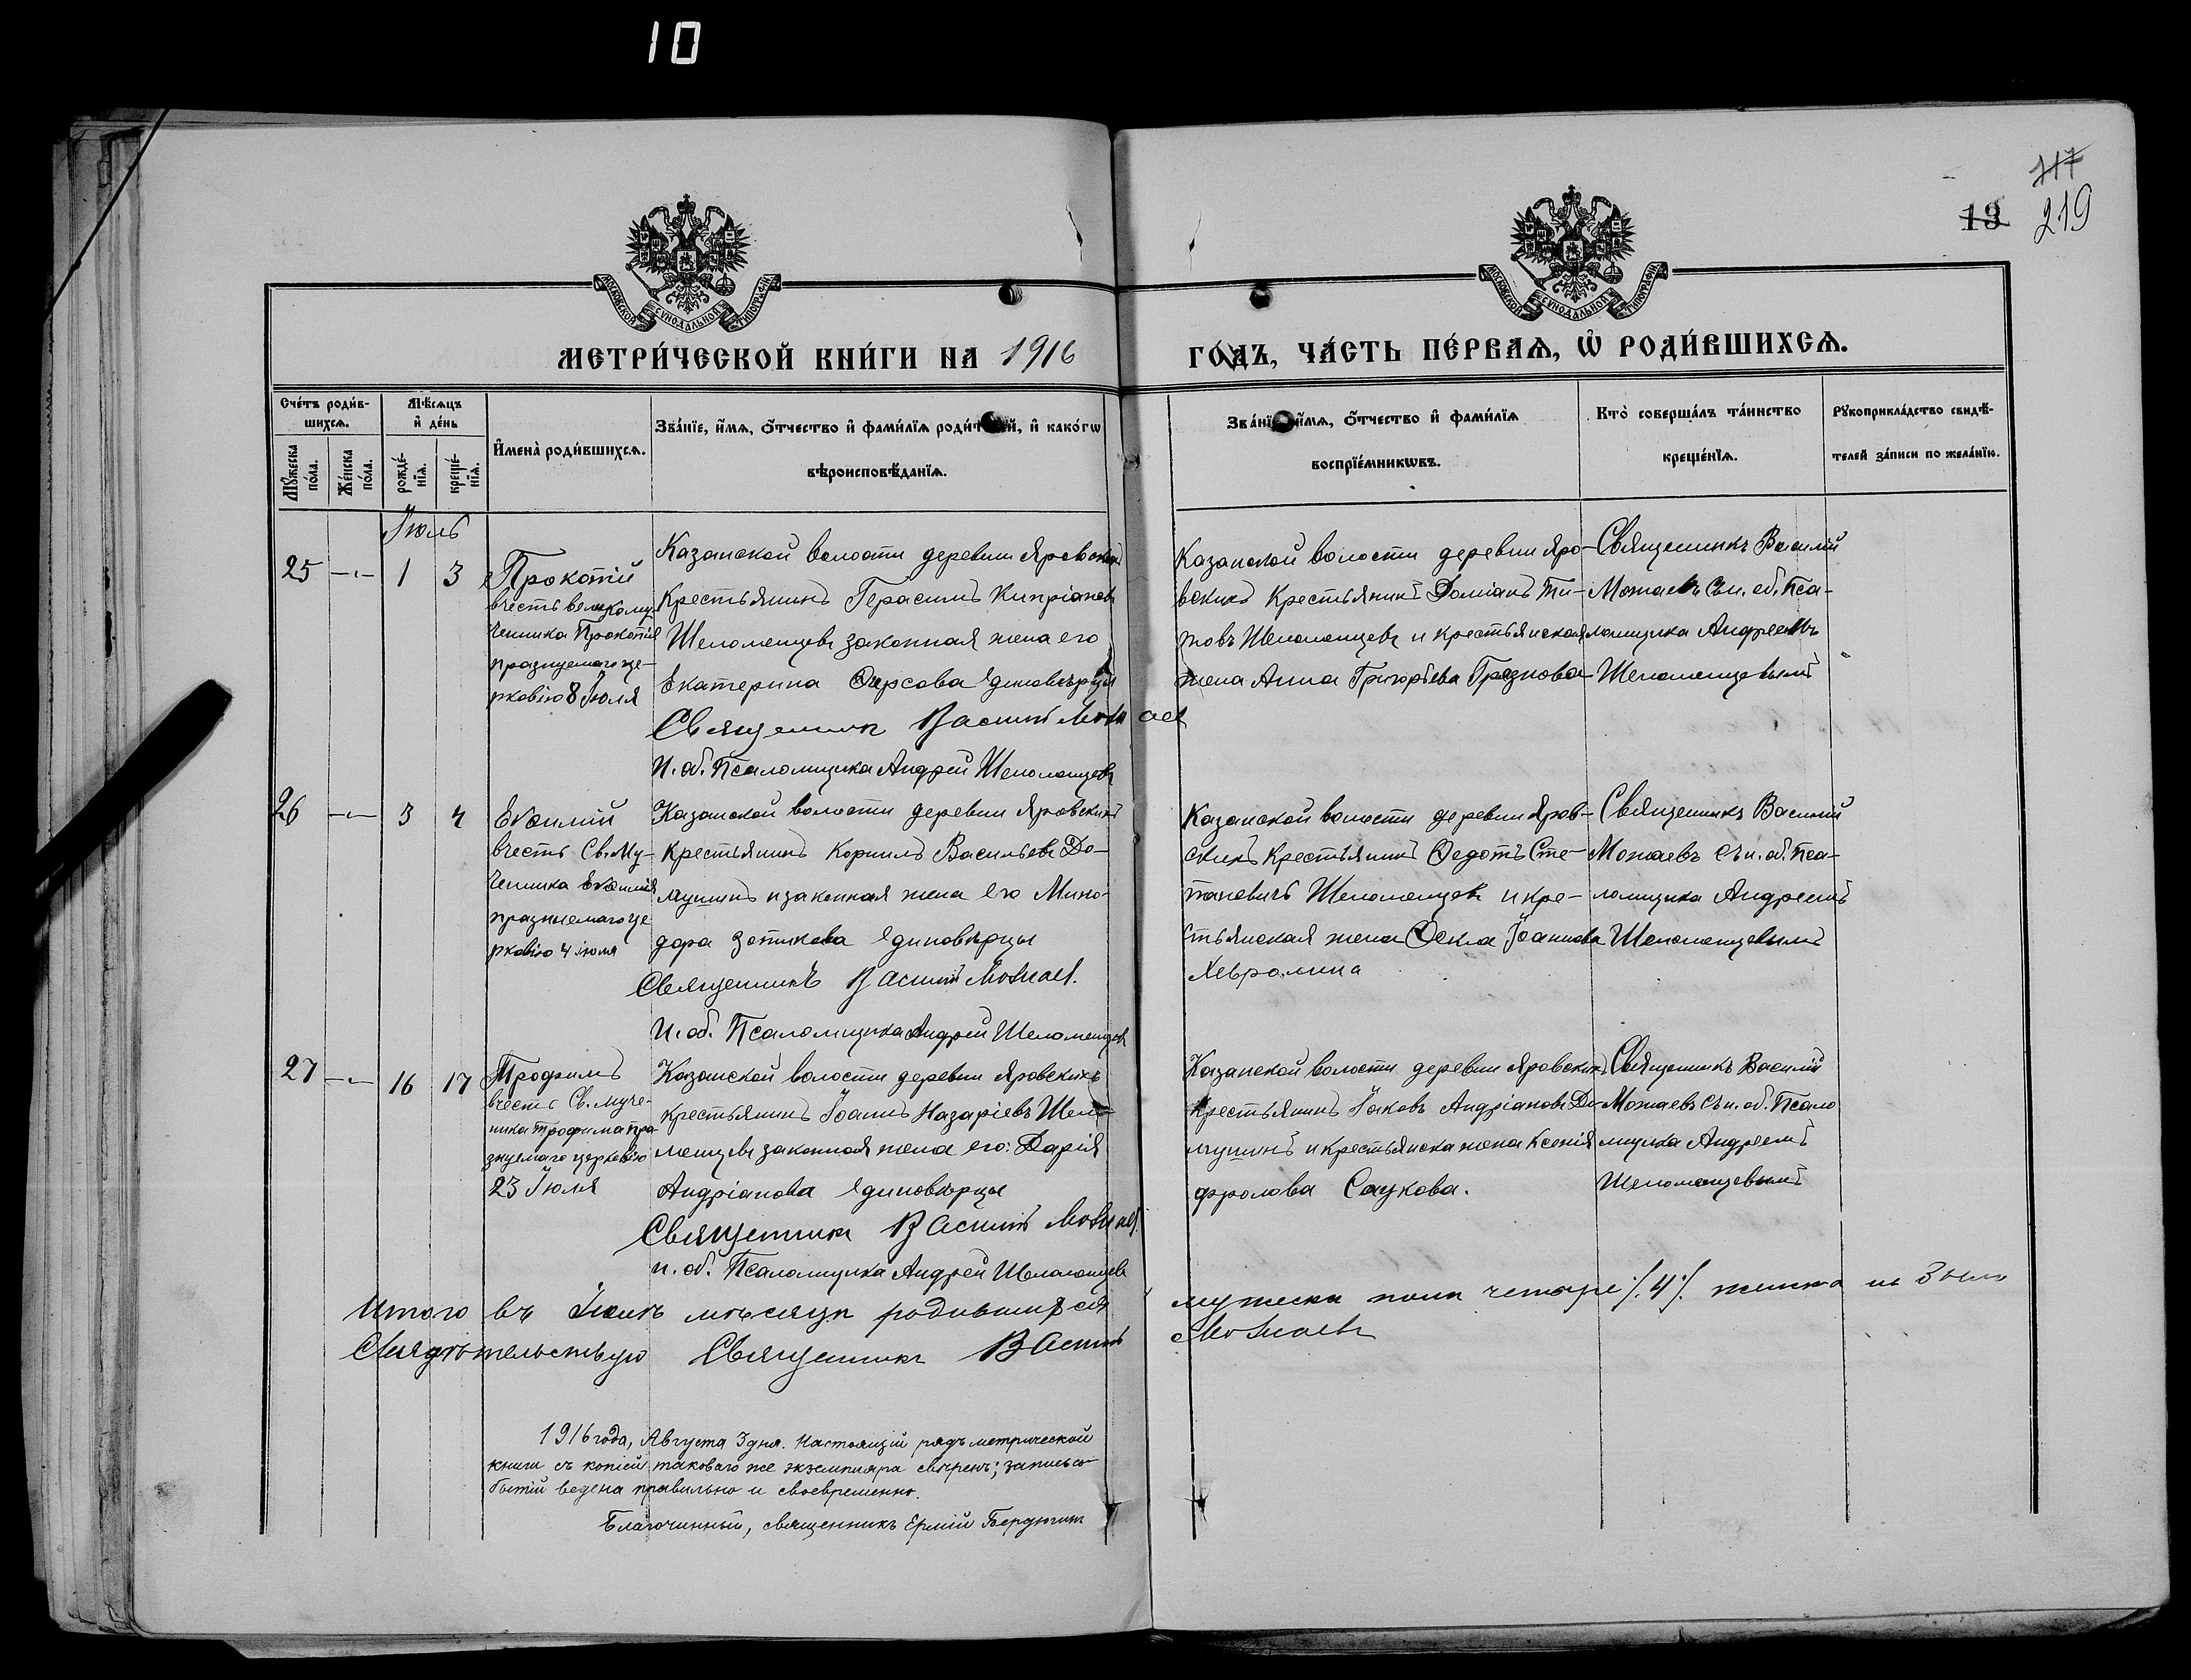 10
117
13 219
МОСКОВСКОЙ СѴНОДАЛЬНОЙ ТИПОГРАФІИ
МОСКОВСКОЙ СѴНОДАЛЬНОЙ ТИПОГРАФІИ
МЕТРИ́ЧЕСКОЙ КНИ́ГИ НА 1916 ГО́ДЪ, ЧА́СТЬ ПЕ́РВАѦ, Ѡ РОДИ́ВШИХСѦ.
Сче́тъ роди́в-
шихсѧ.
Мꙋ́жеска по́ла.
Же́нска по́ла.
Мѣ́сѧцъ и де́нь
рожде́-нїѧ.
креще́-нїѧ.
Имена̀ роди́вшихсѧ.
Зва́нїе, и́мѧ, о́тчество и фами́лїѧ роди́т й, и како́гѡ
вѣроисповѣ́данїѧ.
Зва́нї и́мѧ, о́тчество и фами́лїѧ
воспрїе́мникѡвъ.
Кто̀ соверша́лъ та́инство
креще́нїѧ.
Рꙋкоприкла́дство свидѣ́-
телей за́писи по жела́нїю.
Іюль
25 -"- 1 3
Прокопій
вчесть велкому-
ченика Прокопія
празнуемаго це-
рковію 8 Іюля
Казанской волости деревни Яровскихъ
крестьянинъ Герасимъ Кипріановъ
Шеломенцевъ законная жена его
Екатерина Фирсова Единовѣрцы
Священникъ Василій Можаевъ
И. об. Псаломщика Андрей Шеломенцевъ
Казанской волости деревни Яро-
вскихъ Крестьянинъ Доміанъ Ти-
товъ Шеломенцевъ и крестьянская
жена Анна Григорьева Грязнова
Священникъ Василій
Можаевъ Съ и. об. Пса-
ломщика Андреемъ
Шеломенцевымъ
26 -"- 3 4
Евѳимій
вчесть Св. Му-
ченика Евѳимія
празнуемаго це
рковію 4 іюля
Казанской волости деревни Яровскихъ
крестьянинъ Корнилъ Васильевъ До-
мушинъ и законная жена его Мино-
дора Зотикова Единовѣрцы
Священникъ Василій Можаевъ.
И. об. Псаломщика Андрей Шеломенцевъ
Казанской волости деревни Яров-
скихъ Крестьянинъ Ѳедотъ Сте-
пановичъ Шеломенцевъ и кре-
стьянская жена Ѳекла Іоаннова
Священникъ Василій
Можаевъ Съ и. об. Пса-
ломщика Андреемъ
Шеломенцевымъ
27 -"- 16 17
Трофимъ
вчесть Св. муче-
ника Трофима пра-
знуемаго церковію
23 Іюля
Казанской волости деревни Яровскихъ
крестьянинъ Іоаннъ Назаріевъ Шело-
менцевъ законная жена его: Дарія
Андріанова Единовѣрцы
Священникъ Василій Можаевъ.
и. об. Псаломщика Андрей Шеломенцевъ
Казанской волости деревни Яровскихъ
Крестьянинъ Іаковъ Андріановъ До-
мушинъ и крестьянска жена Ксенія
Фролова Саукова.
Священникъ Василій
Можаевъ Съ и. об. Псало
мщика Андреемъ
Шеломенцевымъ
Итого въ Іюлѣ мѣсяцѣ родившихся мужеска пола четыре /.4/. женска не было
Свидѣтельствую Священникъ Василій Можаевъ
1916 года, Августа 3 дня. Настоящій рядъ метрической
книги съ копіей таковаго же экземпляра свѣренъ; запись со-
бытій ведена правильно и своевременно.
Благочинный, священникъ Ермій Бердюгинъ